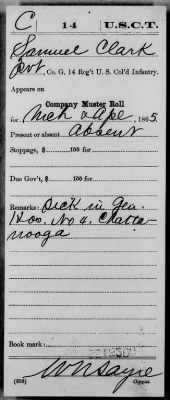 C | 14 | U.S.C.T.
Samuel Clark
Pvt, Co. G, 14 Reg't U. S. Col'd Infantry.
Appears on
Company Muster Roll
for Mch & Apl, 1865
Present or absent Absent
Stoppage, $ 100 for
Due Gov't, $ 100 for
Remarks: Sick in Gen.
Hos. No 4. Chatta-
nooga
Book mark:
W N Sayre
(358) Copyist.